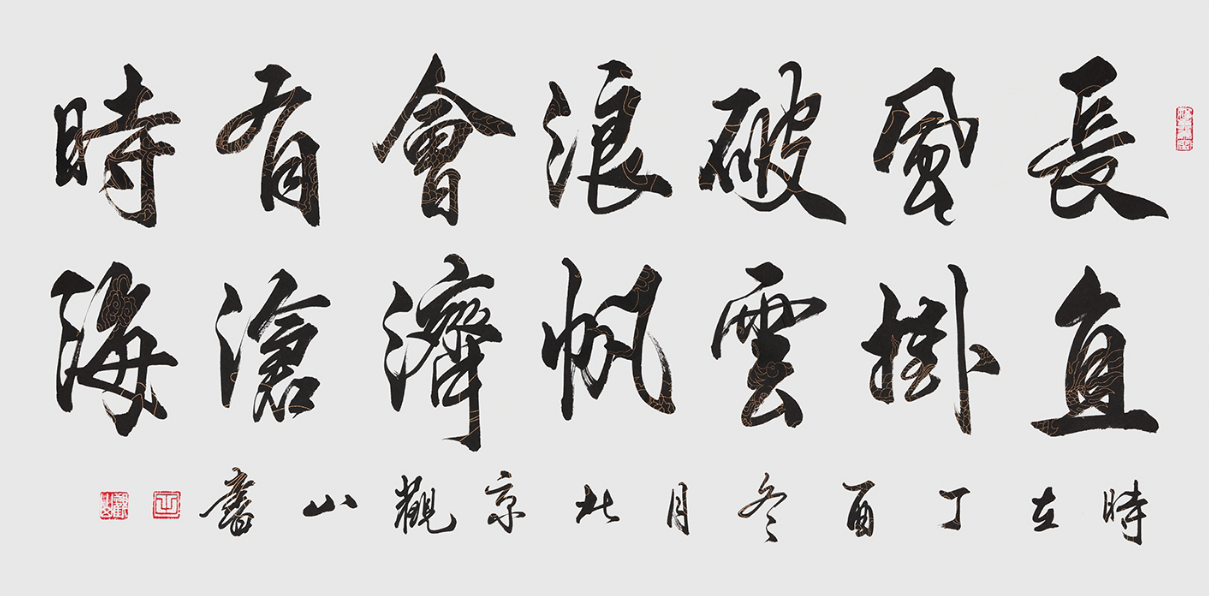 長風破浪會有時
直掛雲帆濟滄海
時在丁酉冬月北京觀山書